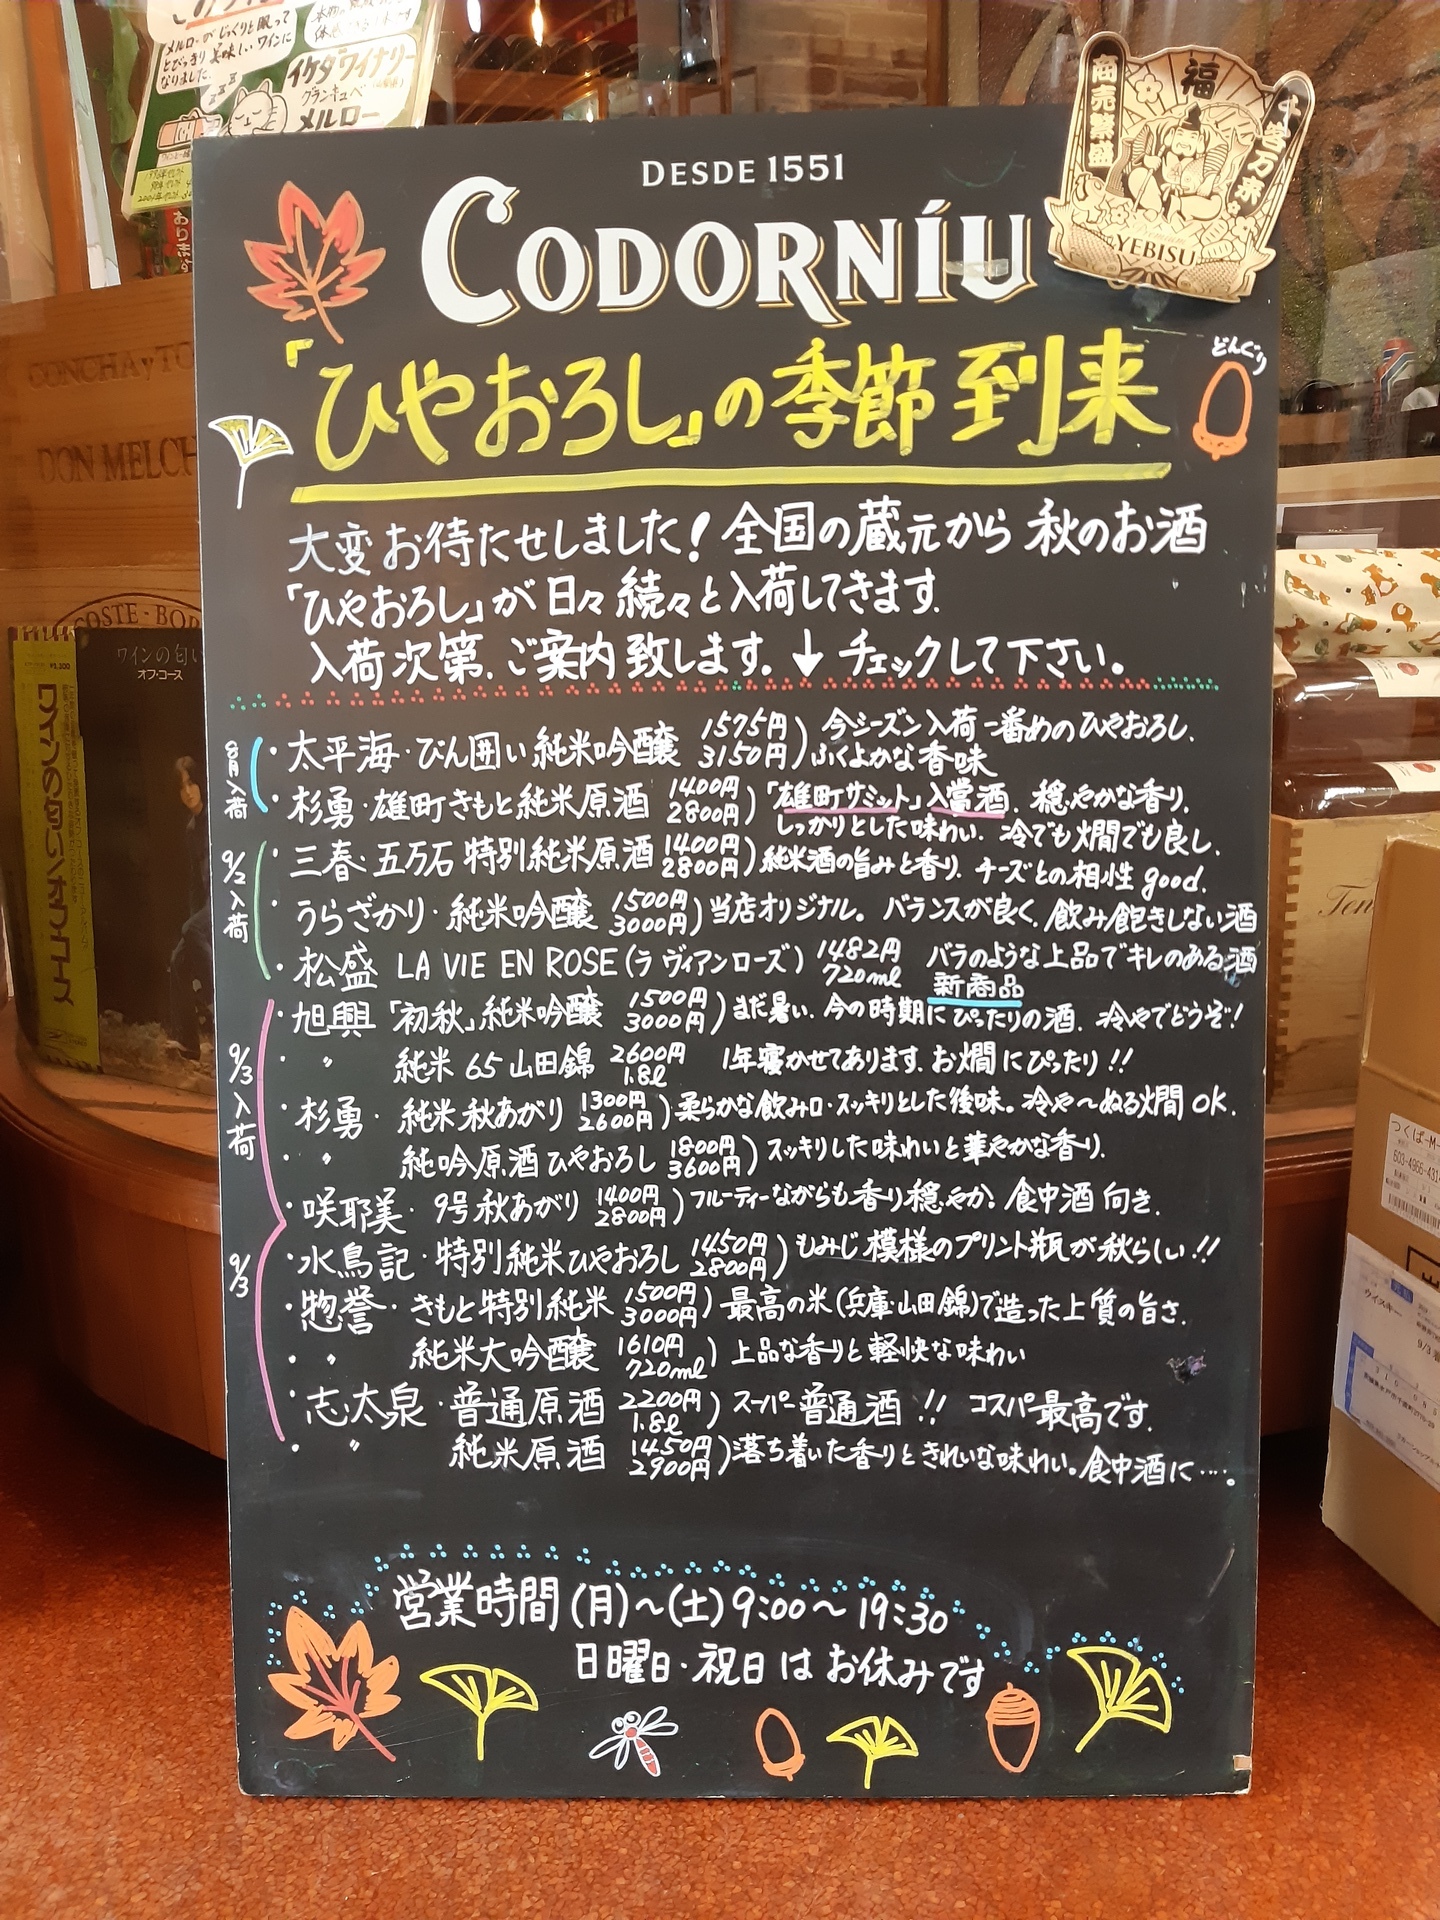 メルローがじっくりと眠って
とびっきり美味しいワインに
なりました。
イケダワイナリー
グランキュベ
メルロー
商売繁盛
福
千客万来
YEBISU
DESDE 1551
CODORNÍU
「ひやおろし」の季節到来
どんぐり
大変お待たせしました!全国の蔵元から秋のお酒
「ひやおろし」が日々続々と入荷してきます.
入荷次第.ご案内致します.↓チェックして下さい。
8月入荷
・太平海・びん囲い純米吟醸 1575円 3150円)今シーズン入荷一番めのひやおろし.
ふくよかな香味
・杉勇・雄町きもと純米原酒 1400円 2800円)「雄町サミット」入賞酒.穏やかな香り.
しっかりとした味わい.冷でも燗でも良し.
9/2入荷
・三春・五万石 特別純米原酒 1400円 2800円)純米酒の旨みと香り.チーズとの相性good.
・うらざかり・純米吟醸 1500円 3000円)当店オリジナル。バランスが良く.飲み飽きしない酒
・松盛 LA VIE EN ROSE(ラ ヴィアンローズ) 1482円 720ml バラのような上品でキレのある酒
新商品
9/3入荷
・旭興「初秋」純米吟醸 1500円 3000円)まだ暑い.今の時期にぴったりの酒.冷やでどうぞ!
・〃 純米65山田錦 2600円 1.8ℓ 1年寝かせてあります.お燗にぴったり!!
・杉勇・純米秋あがり 1300円 2600円)柔らかな飲み口・スッキリとした後味。冷や〜ぬる燗OK.
・〃 純吟原酒ひやおろし 1800円 3600円)スッキリした味わいと華やかな香り.
・咲耶美・9号秋あがり 1400円 2800円)フルーティーながらも香り穏やか.食中酒向き.
9/3
・水鳥記・特別純米ひやおろし 1450円 2800円)もみじ模様のプリント瓶が秋らしい!!
・惣誉・きもと特別純米 1500円 3000円)最高の米(兵庫・山田錦)で造った上質の旨さ.
・〃 純米大吟醸 1610円 720ml)上品な香りと軽快な味わい
・志太泉・普通原酒 2200円 1.8ℓ)スーパー普通酒!!コスパ最高です.
・〃 純米原酒 1450円 2900円)落ち着いた香りときれいな味わい。食中酒に‥‥。
営業時間(月)〜(土)9:00〜19:30
日曜日・祝日はお休みです
CONCHA y TO
DON MELCH
ワインの匂い
オフ・コース
ワインの匂い/オフ・コース
¥1,300
つくば-M-
ウイスキー
9/3